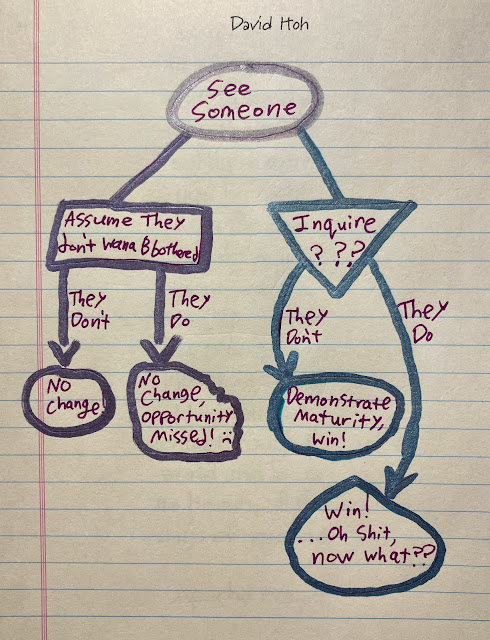 David Hoh
See
Someone
Assume They
don't wana B bothered
Inquire
? ? ?
They
Don't
They
Do
They
Don't
They
Do
No
Change!
No
Change,
opportunity
Missed! :(
Demonstrate
Maturity,
win!
Win!
...Oh Shit,
now what??